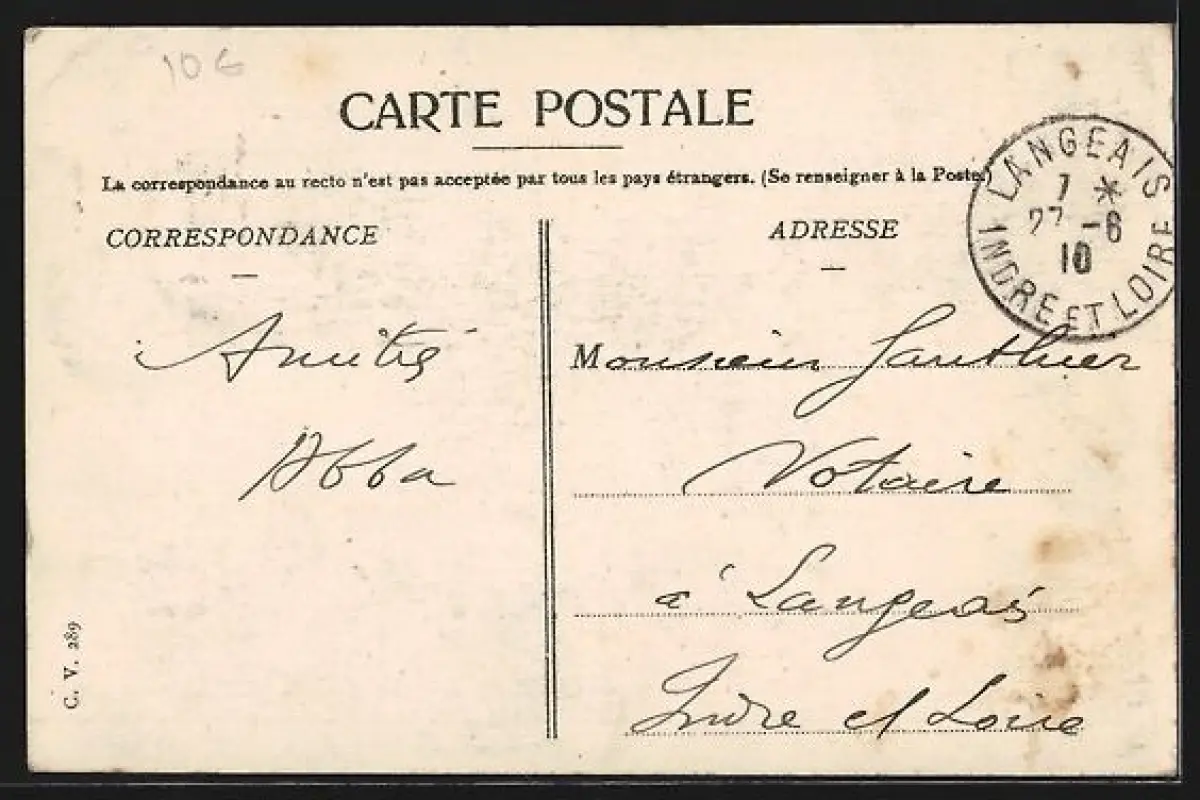 10 G
CARTE POSTALE
La correspondance au recto n'est pas acceptée par tous les pays étrangers. (Se renseigner à la Poste.)
CORRESPONDANCE
Amitié
Abba
C. V. 289
ADRESSE
Monsieur Gauthier
Notaire
à Langeais
Indre et Loire
LANGEAIS
7 *
27 -6
10
INDRE ET LOIRE